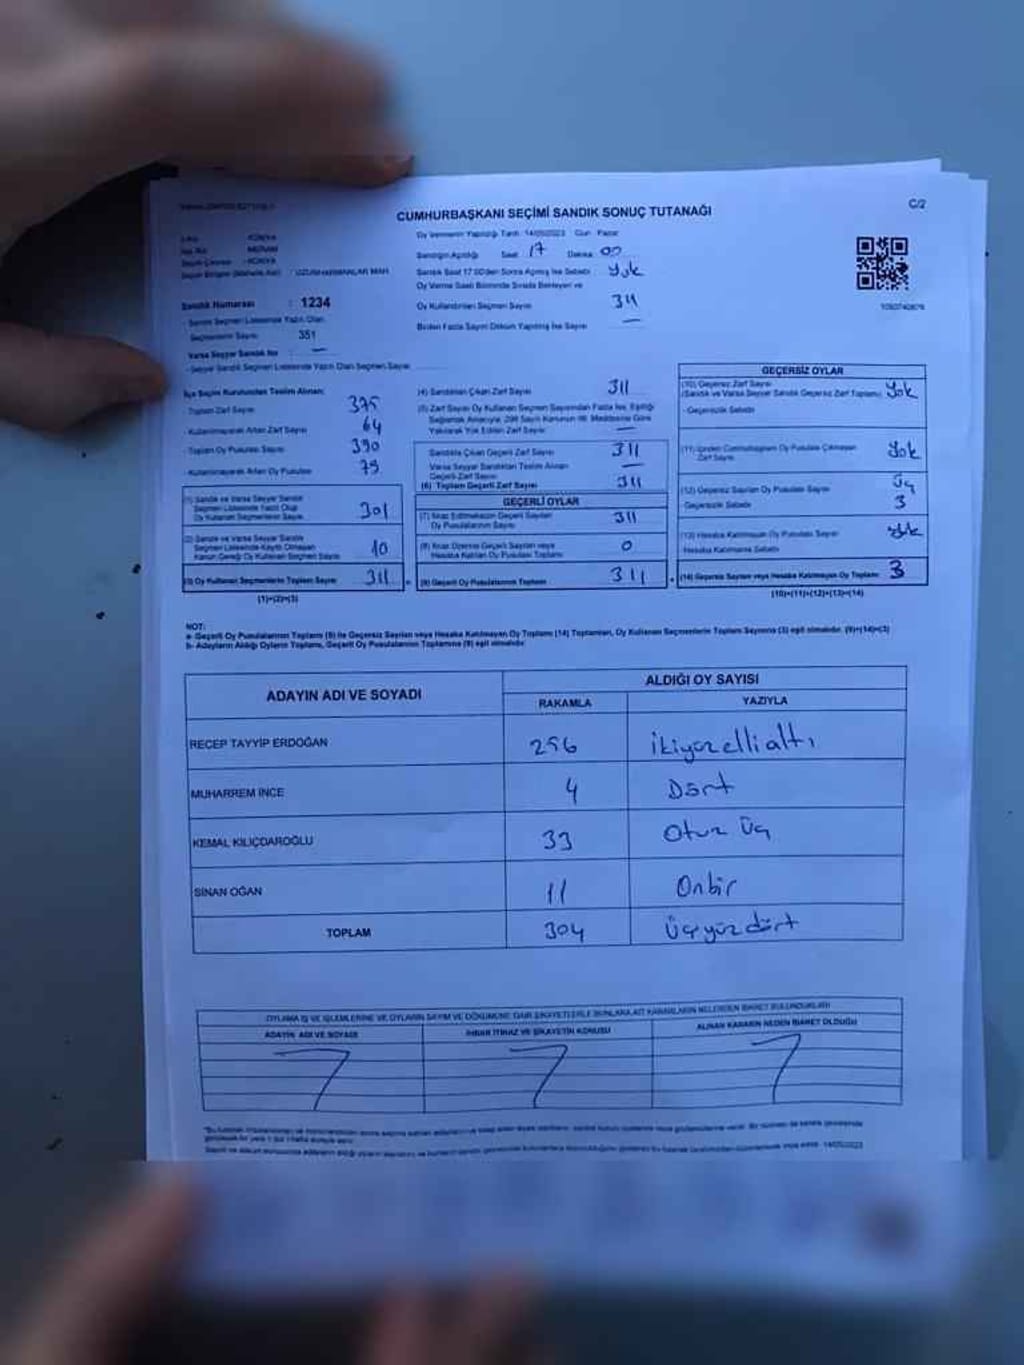 C/2
CUMHURBAŞKANI SEÇİMİ SANDIK SONUÇ TUTANAĞI
Oy Vermenin Yapıldığı Tarih: 14/05/2023 Gün: Pazar
Sandığın Açıldığı Saat: 17 Dakika: 00
Sandık Saat 17.00'den Sonra Açılmış İse Sebebi: Yok
Oy Verme Saati Bitiminde Sırada Bekleyen ve
Oy Kullandırılan Seçmen Sayısı
Birden Fazla Sayım Döküm Yapılmış İse Sayısı —
: KONYA
: MERAM
: KONYA
: UZUNHARMANLAR MAH.
Sandık Numarası : 1234
Seçmenlerin Sayısı : 351
Varsa Seyyar Sandık No : —
- Seyyar Sandık Seçmen Listesinde Yazılı Olan Seçmen Sayısı:
İlçe Seçim Kurulundan Teslim Alınan:
- Toplam Zarf Sayısı 375
- Kullanılmayarak Artan Zarf Sayısı 64
- Toplam Oy Pusulası Sayısı 390
- Kullanılmayarak Artan Oy Pusulası 79
(1) Sandık ve Varsa Seyyar Sandık
Seçmen Listesinde Yazılı Olup
Oy Kullanan Seçmenlerin Sayısı 301
(2) Sandık ve Varsa Seyyar Sandık
Seçmen Listesinde Kayıtlı Olmayan
Kanun Gereği Oy Kullanan Seçmen Sayısı 10
(3) Oy Kullanan Seçmenlerin Toplam Sayısı 311
(1)+(2)=(3)
(4) Sandıktan Çıkan Zarf Sayısı 311
(5) Zarf Sayısı Oy Kullanan Seçmen Sayısından Fazla İse, Eşitliği
Sağlamak Amacıyla, 298 Sayılı Kanunun 98. Maddesine Göre
Yakılarak Yok Edilen Zarf Sayısı —
Sandıkta Çıkan Geçerli Zarf Sayısı 311
Varsa Seyyar Sandıktan Teslim Alınan
Geçerli Zarf Sayısı —
(6) Toplam Geçerli Zarf Sayısı 311
GEÇERLİ OYLAR
(7) İtiraz Edilmeksizin Geçerli Sayılan
Oy Pusulalarının Sayısı 311
(8) İtiraz Üzerine Geçerli Sayılan veya
Hesaba Katılan Oy Pusulası Toplamı 0
(9) Geçerli Oy Pusulalarının Toplamı 311
GEÇERSİZ OYLAR
(10) Geçersiz Zarf Sayısı
(Sandık ve Varsa Seyyar Sandık Geçersiz Zarf Toplamı) Yok
- Geçersizlik Sebebi
Zarf Sayısı Yok
(12) Geçersiz Sayılan Oy Pusulası Sayısı Üç
Geçersizlik Sebebi 3
(13) Hesaba Katılmayan Oy Pusulası Sayısı Yok
Hesaba Katılmama Sebebi
(14) Geçersiz Sayılan veya Hesaba Katılmayan Oy Toplamı 3
(10)+(11)+(12)+(13)=(14)
NOT:
a- Geçerli Oy Pusulalarının Toplamı (9) ile Geçersiz Sayılan veya Hesaba Katılmayan Oy Toplamı (14) Toplamları, Oy Kullanan Seçmenlerin Toplam Sayısına (3) eşit olmalıdır. (9)+(14)=(3)
b- Adayların Aldığı Oyların Toplamı, Geçerli Oy Pusulalarının Toplamına (9) eşit olmalıdır.
ADAYIN ADI VE SOYADI
ALDIĞI OY SAYISI
RAKAMLA YAZIYLA
RECEP TAYYİP ERDOĞAN 256 ikiyüzellialtı
MUHARREM İNCE 4 Dört
KEMAL KILIÇDAROĞLU 33 Otuz Üç
SİNAN OĞAN 11 Onbir
TOPLAM 304 Üçyüzdört
OYLAMA İŞ VE İŞLEMLERİNE VE OYLARIN SAYIM VE DÖKÜMÜNE DAİR ŞİKAYETLERLE BUNLARA AİT KARARLARIN NELERDEN İBARET BULUNDUKLARI
ADAYIN ADI VE SOYADI
İHBAR İTİRAZ VE ŞİKAYETİN KONUSU
ALINAN KARARIN NEDEN İBARET OLDUĞU